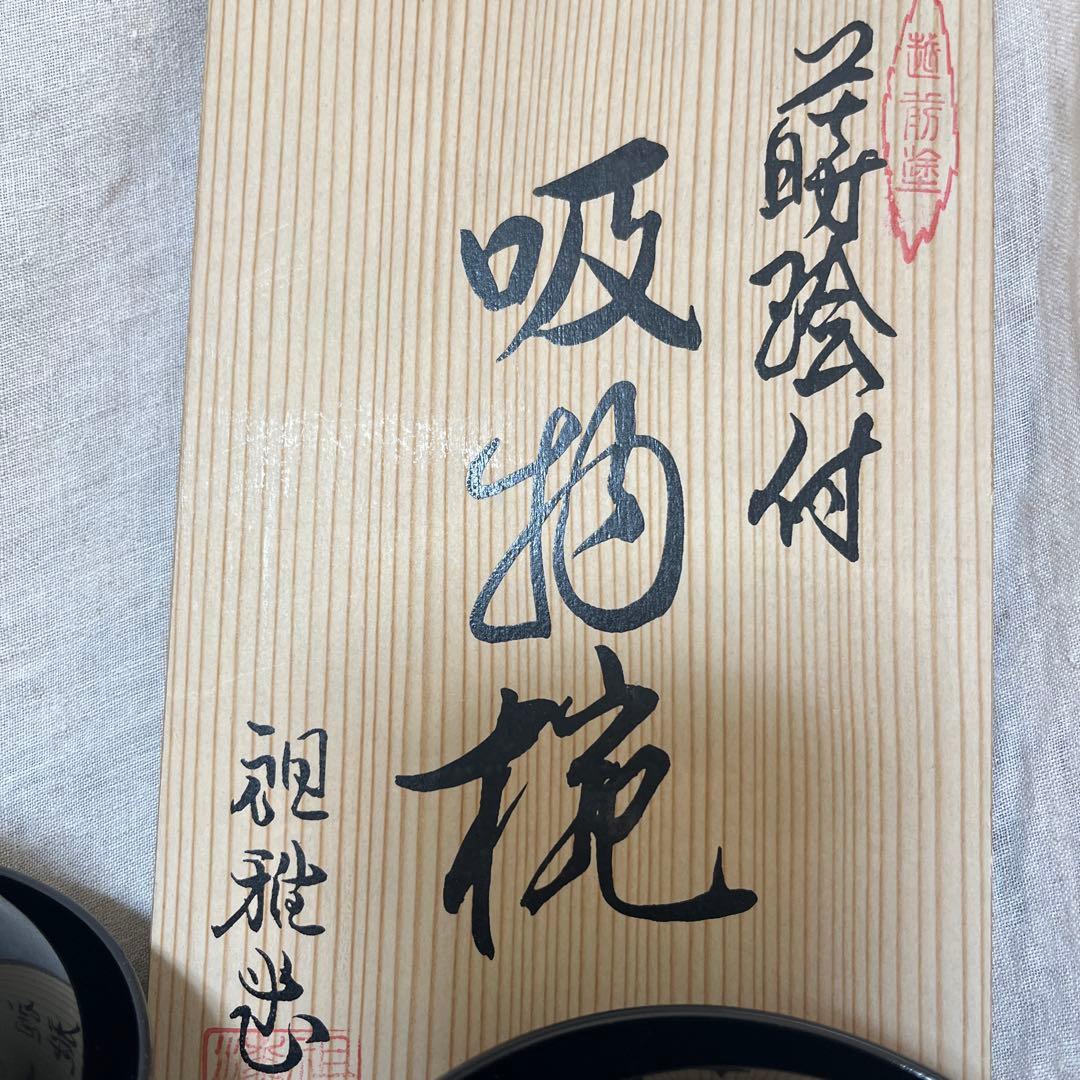 越前塗
蒔絵付
吸物椀
祖雅